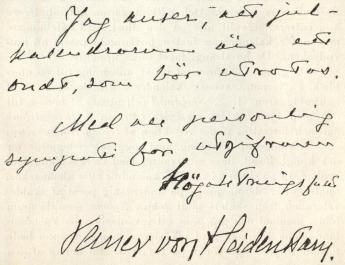 Jag anser, att jul-
kalendrarna äro ett
ondt, som bör utrotas.
Med all personlig
sympati för utgifvaren
Högaktningsfullt
Verner von Heidenstam.